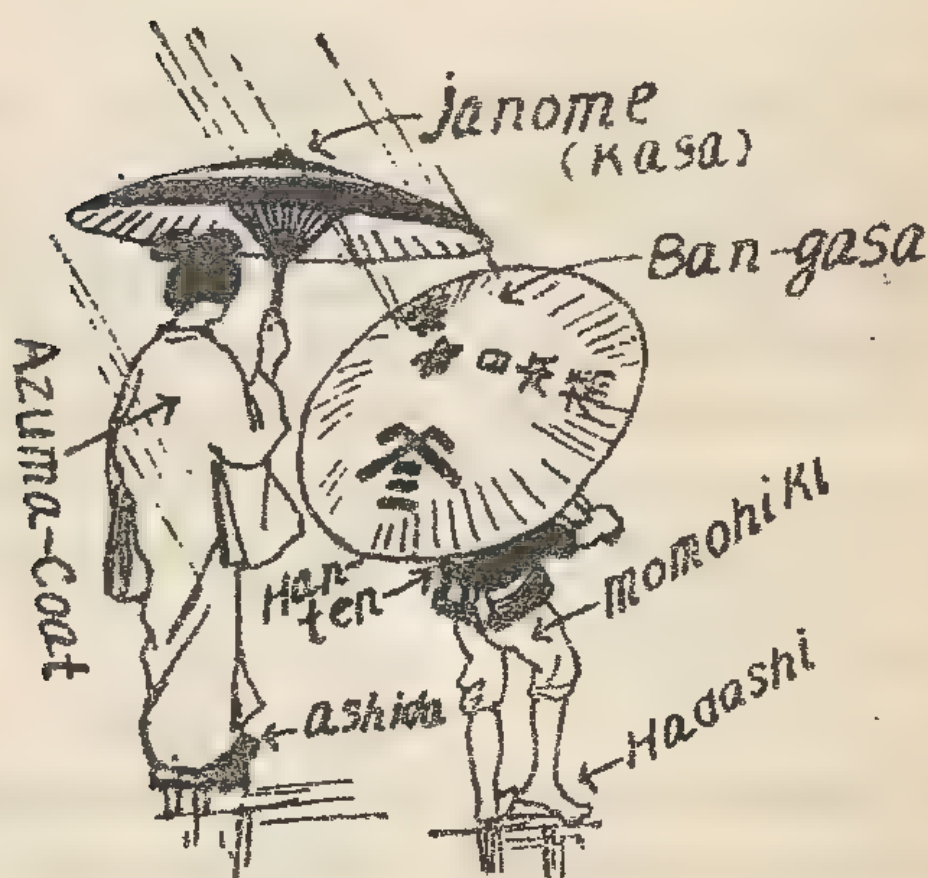 janome
(Kasa)
Ban-gasa
Azuma-Coat
Han-
ten
momohiki
ashida
Hadashi